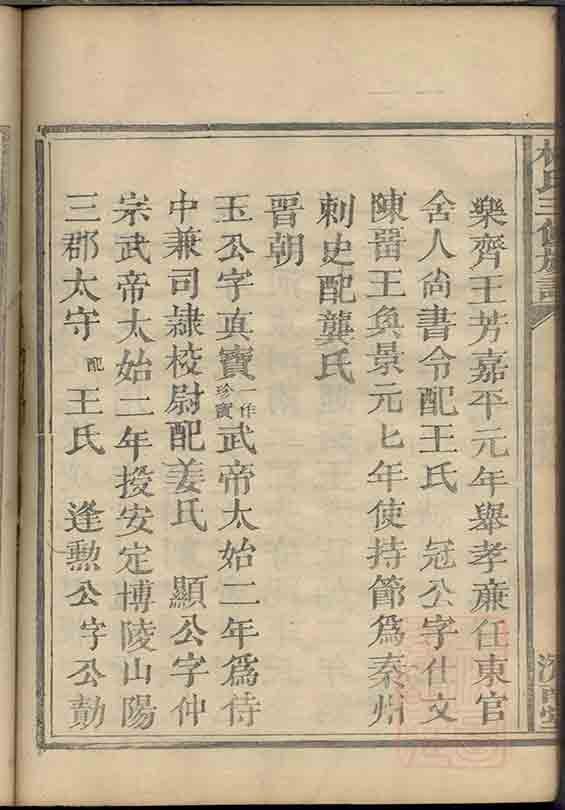 林氏三修族譜
樂齊王芳嘉平元年舉孝廉任東官
舍人尚書令配王氏 冠公字仕文
陳畱王奐景元七年使持節爲秦州
刺史配龔氏
晋朝
玉公字真寶一作珍寶武帝太始二年爲侍
中兼司隸校尉配姜氏 顯公字仲
宗武帝太始二年授安定博陵山陽
三郡太守配王氏 逢勲公字公勣